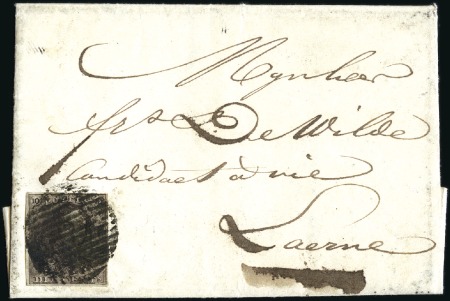 Mynheer
frs L. De Wilde
Candidaet à vie
Laerne
10